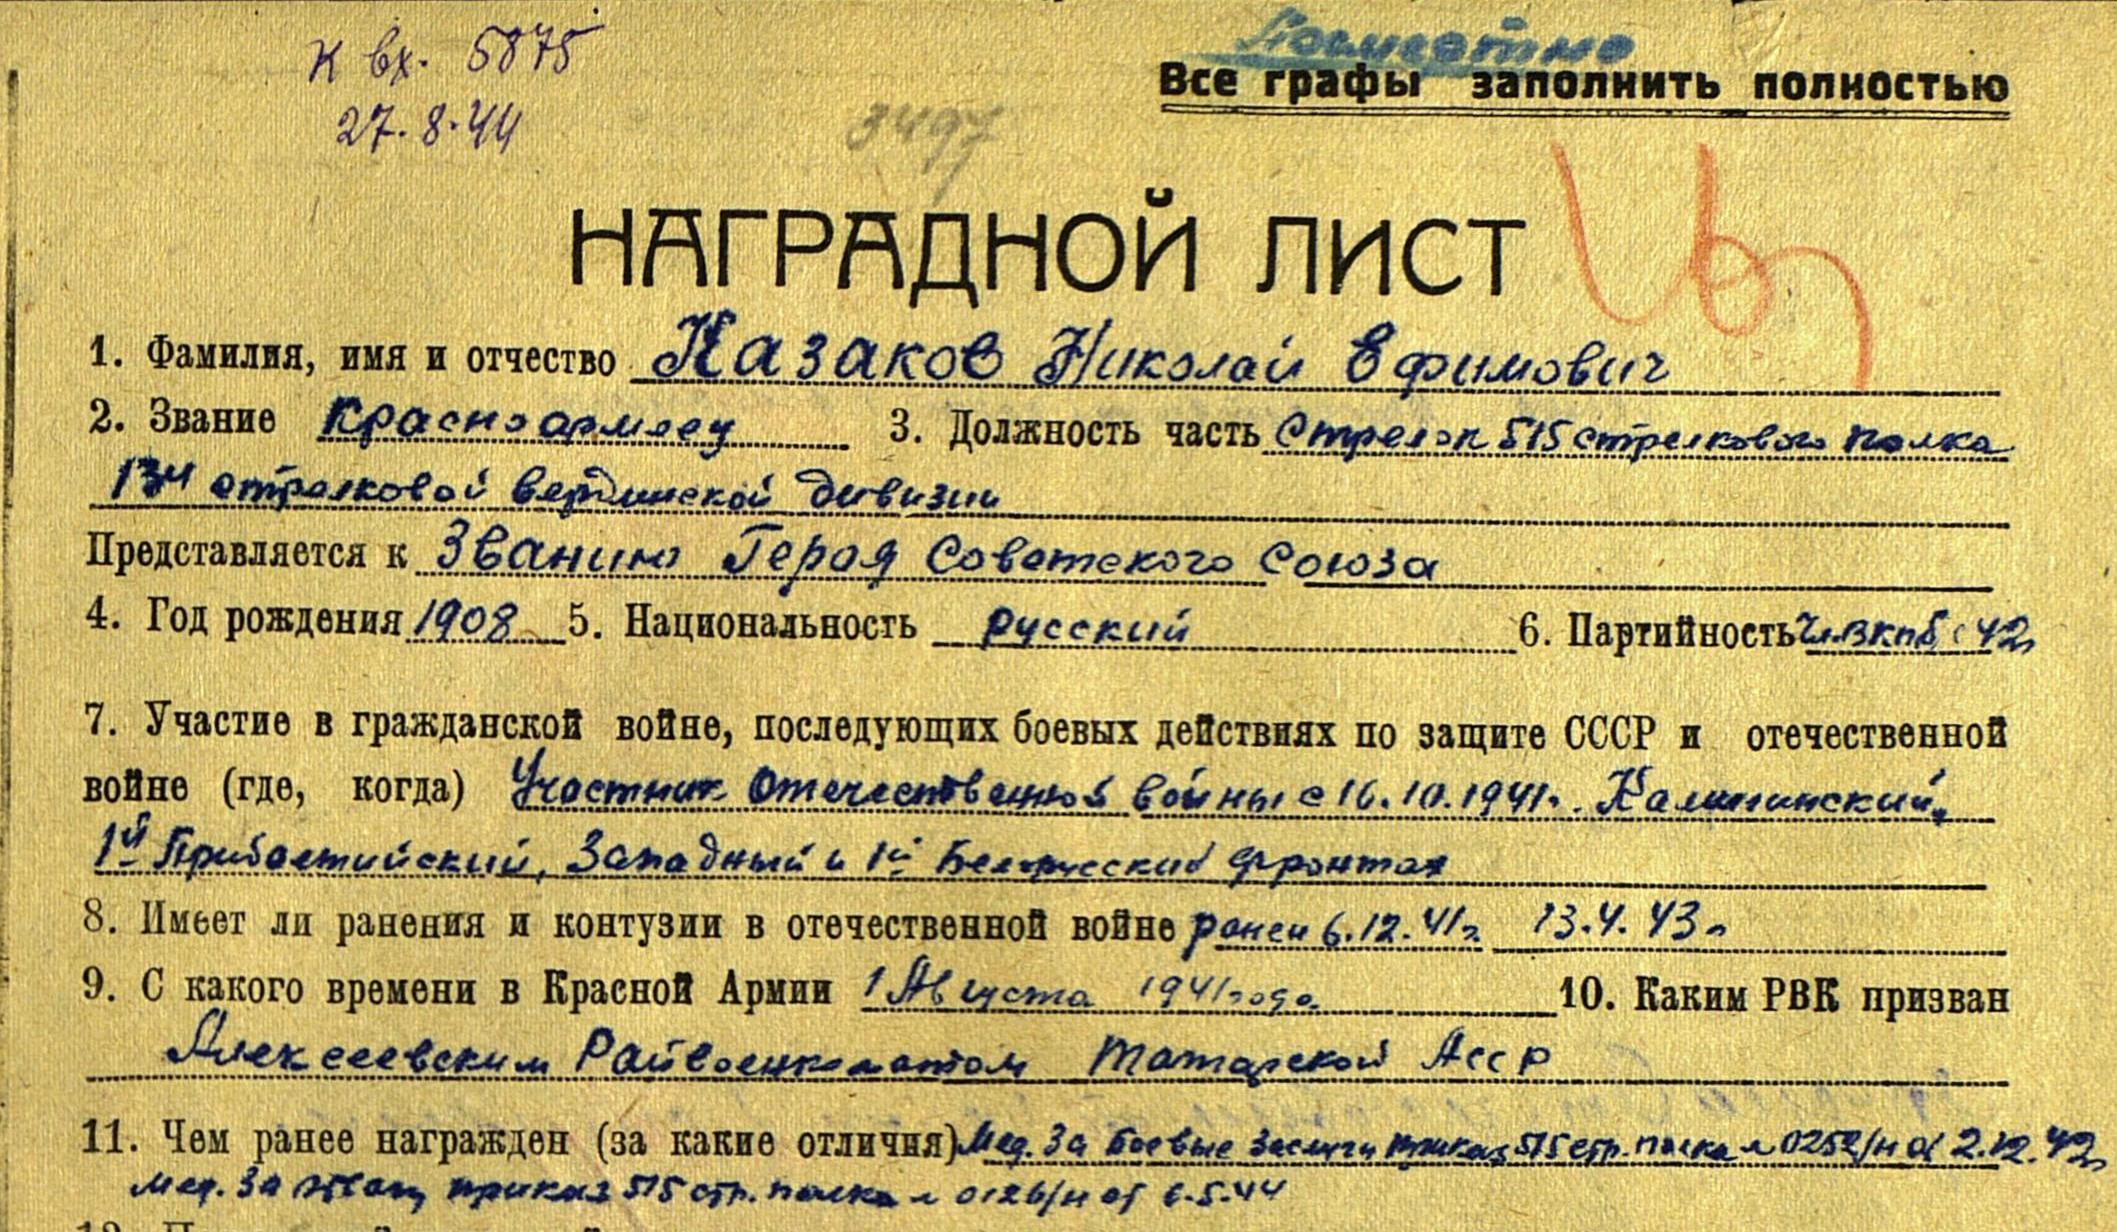 К вх. 5875
27.8.44
Посмертно
Все графы заполнить полностью
3497
НАГРАДНОЙ ЛИСТ
1. Фамилия, имя и отчество Казаков Николай Ефимович
2. Звание Красноармеец 3. Должность часть Стрелок 515 стрелкового полка
134 стрелковой вердинской дивизии
Представляется к Званию Героя Советского Союза
4. Год рождения 1908 5. Национальность русский 6. Партийность Чл. ВКПб с 42г
7. Участие в гражданской войне, последующих боевых действиях по защите СССР и отечественной
войне (где, когда) Участник Отечественной войны с 16.10.1941г. Калининский,
1й Прибалтийский, Западный и 1й Белорусский фронтах
8. Имеет ли ранения и контузии в отечественной войне ранен 6.12.41г. 13.4.43г
9. С какого времени в Красной Армии 1 Августа 1941 года. 10. Каким РВК призван
Алексеевским Райвоенкоматом Татарской АССР
11. Чем ранее награжден (за какие отличия) Мед. За боевые заслуги приказ 515 стр. полка № 0252/н от 2.12.42г
Мед. За отвагу приказ 515 стр. полка № 0126/н от 6.5.44